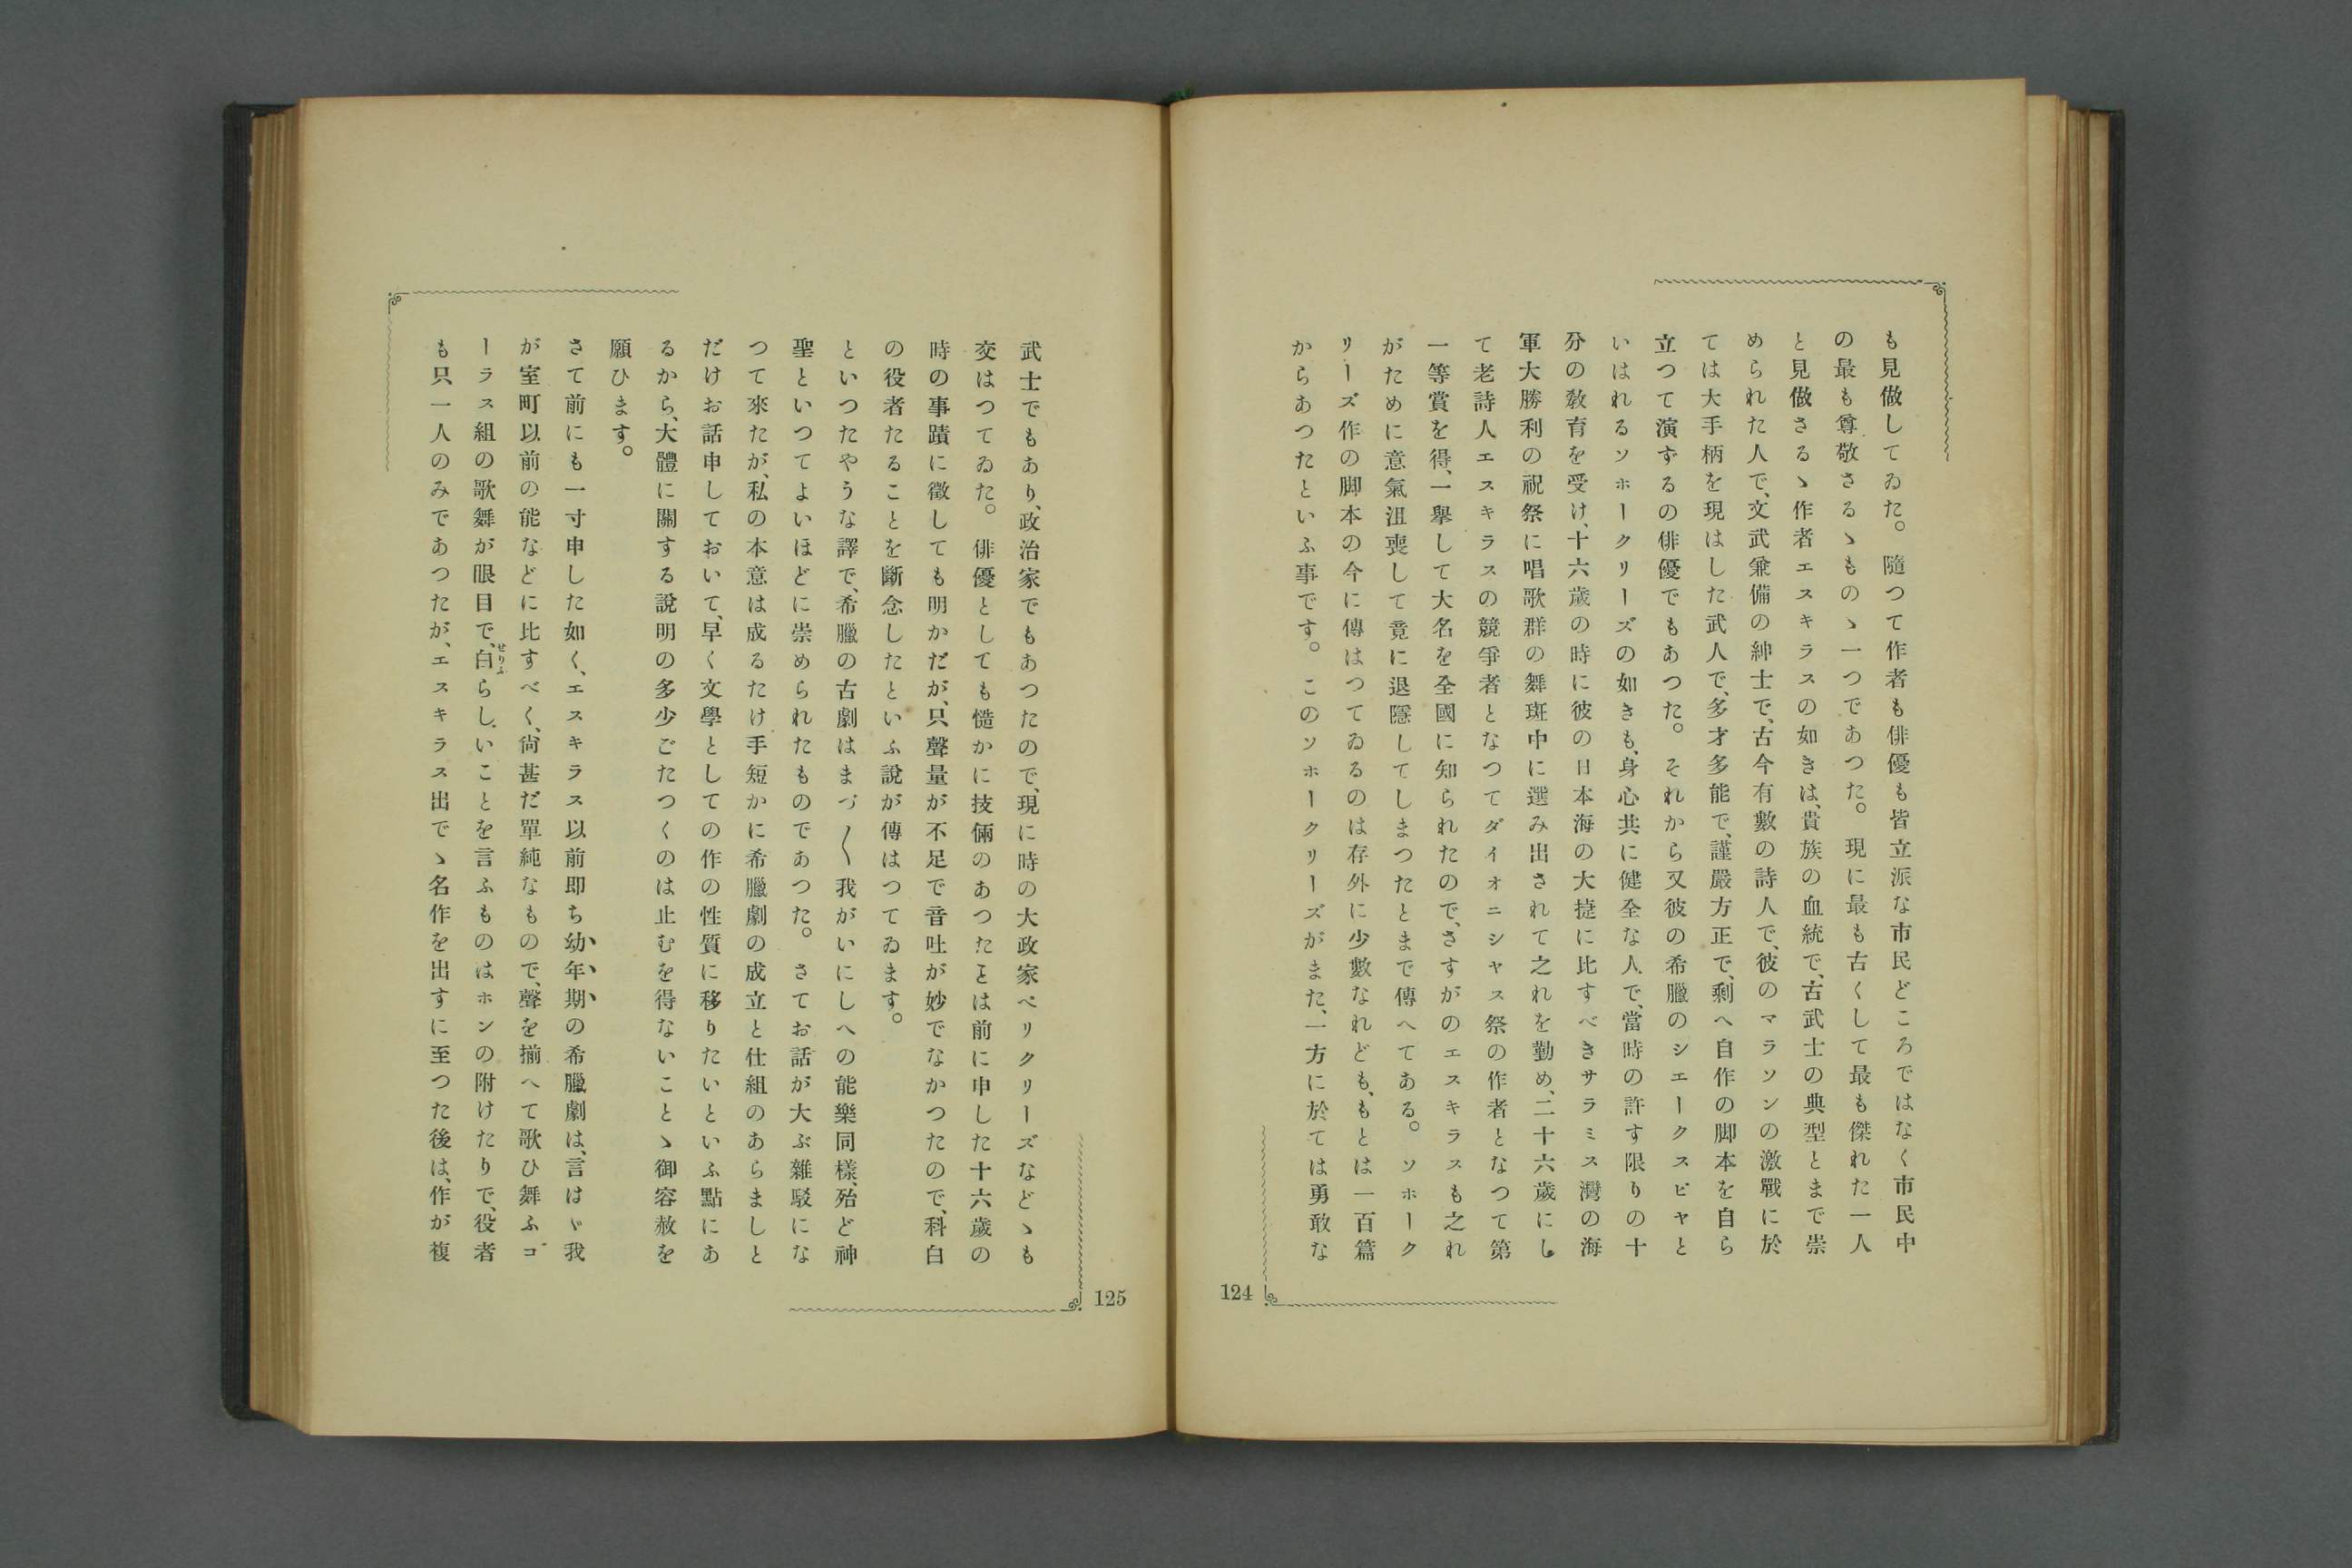 も見做してゐた。隨つて作者も俳優も皆立派な市民どころではなく市民中
の最も尊敬さるゝものゝ一つであつた。現に最も古くして最も傑れた一人
と見做さるゝ作者エスキラスの如きは、貴族の血統で、古武士の典型とまで崇
められた人で、文武兼備の紳士で、古今有數の詩人で、彼のマラソンの激戰に於
ては大手柄を現はした武人で、多才多能で、謹嚴方正で、剩へ自作の脚本を自ら
立つて演ずるの俳優でもあつた。それから又彼の希臘のシエークスピヤと
いはれるソホークリーズの如きも、身心共に健全な人で、當時の許す限りの十
分の敎育を受け、十六歲の時に彼の日本海の大捷に比すべきサラミス灣の海
軍大勝利の祝祭に唱歌群の舞斑中に選み出されて之れを勤め、二十六歲にし
て老詩人エスキラスの競爭者となつてダイオニシヤス祭の作者となつて第
一等賞を得、一擧して大名を全國に知られたので、さすがのエスキラスも之れ
がために意氣沮喪して竟に退隱してしまつたとまで傳へてある。ソホーク
リーズ作の脚本の今に傳はつてゐるのは存外に少數なれども、もとは一百篇
からあつたといふ事です。このソホークリーズがまた、一方に於ては勇敢な
124
武士でもあり、政治家でもあつたので、現に時の大政家ペリクリーズなどゝも
交はつてゐた。俳優としても慥かに技倆のあつたことは前に申した十六歲の
時の事蹟に徵しても明かだが、只聲量が不足で音吐が妙でなかつたので、科白
の役者たることを斷念したといふ說が傳はつてゐます。
といつたやうな譯で、希臘の古劇はまづ〱我がいにしへの能樂同樣、殆ど神
聖といつてよいほどに崇められたものであつた。さてお話が大ぶ雜駁にな
つて來たが、私の本意は成るたけ手短かに希臘劇の成立と仕組のあらましと
だけお話申しておいて、早く文學としての作の性質に移りたいといふ點にあ
るから、大體に關する說明の多少ごたつくのは止むを得ないことゝ御容赦を
願ひます。
さて前にも一寸申した如く、エスキラス以前即ち幼年期の希臘劇は、言はゞ我
が室町以前の能などに比すべく、尙甚だ單純なもので、聲を揃へて歌ひ舞ふコ
ーラス組の歌舞が眼目で、白らしいことを言ふものはホンの附けたりで、役者
も只一人のみであつたが、エスキラス出でゝ名作を出すに至つた後は、作が複
せりふ
125